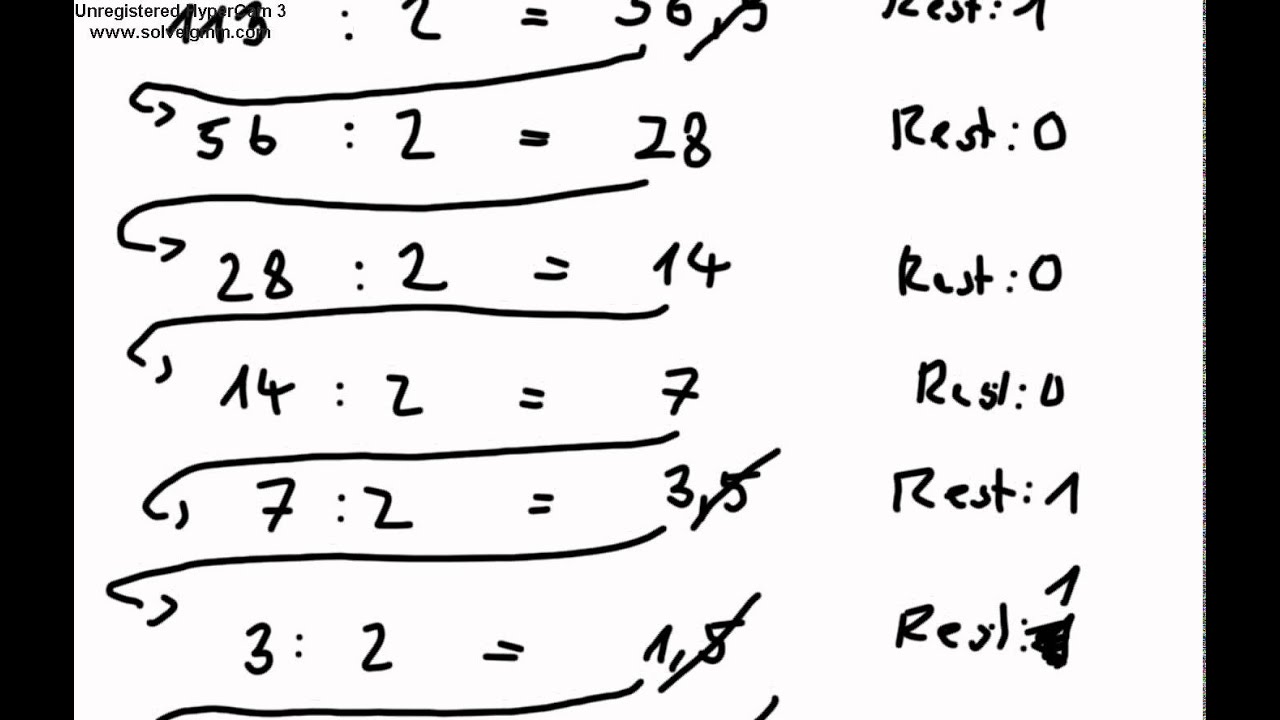 Unregistered HyperCam 3
www.solveigmm.com
113 : 2 = 56,5 Rest: 1
56 : 2 = 28 Rest: 0
28 : 2 = 14 Rest: 0
14 : 2 = 7 Rest: 0
7 : 2 = 3,5 Rest: 1
3 : 2 = 1,5 Rest: 1